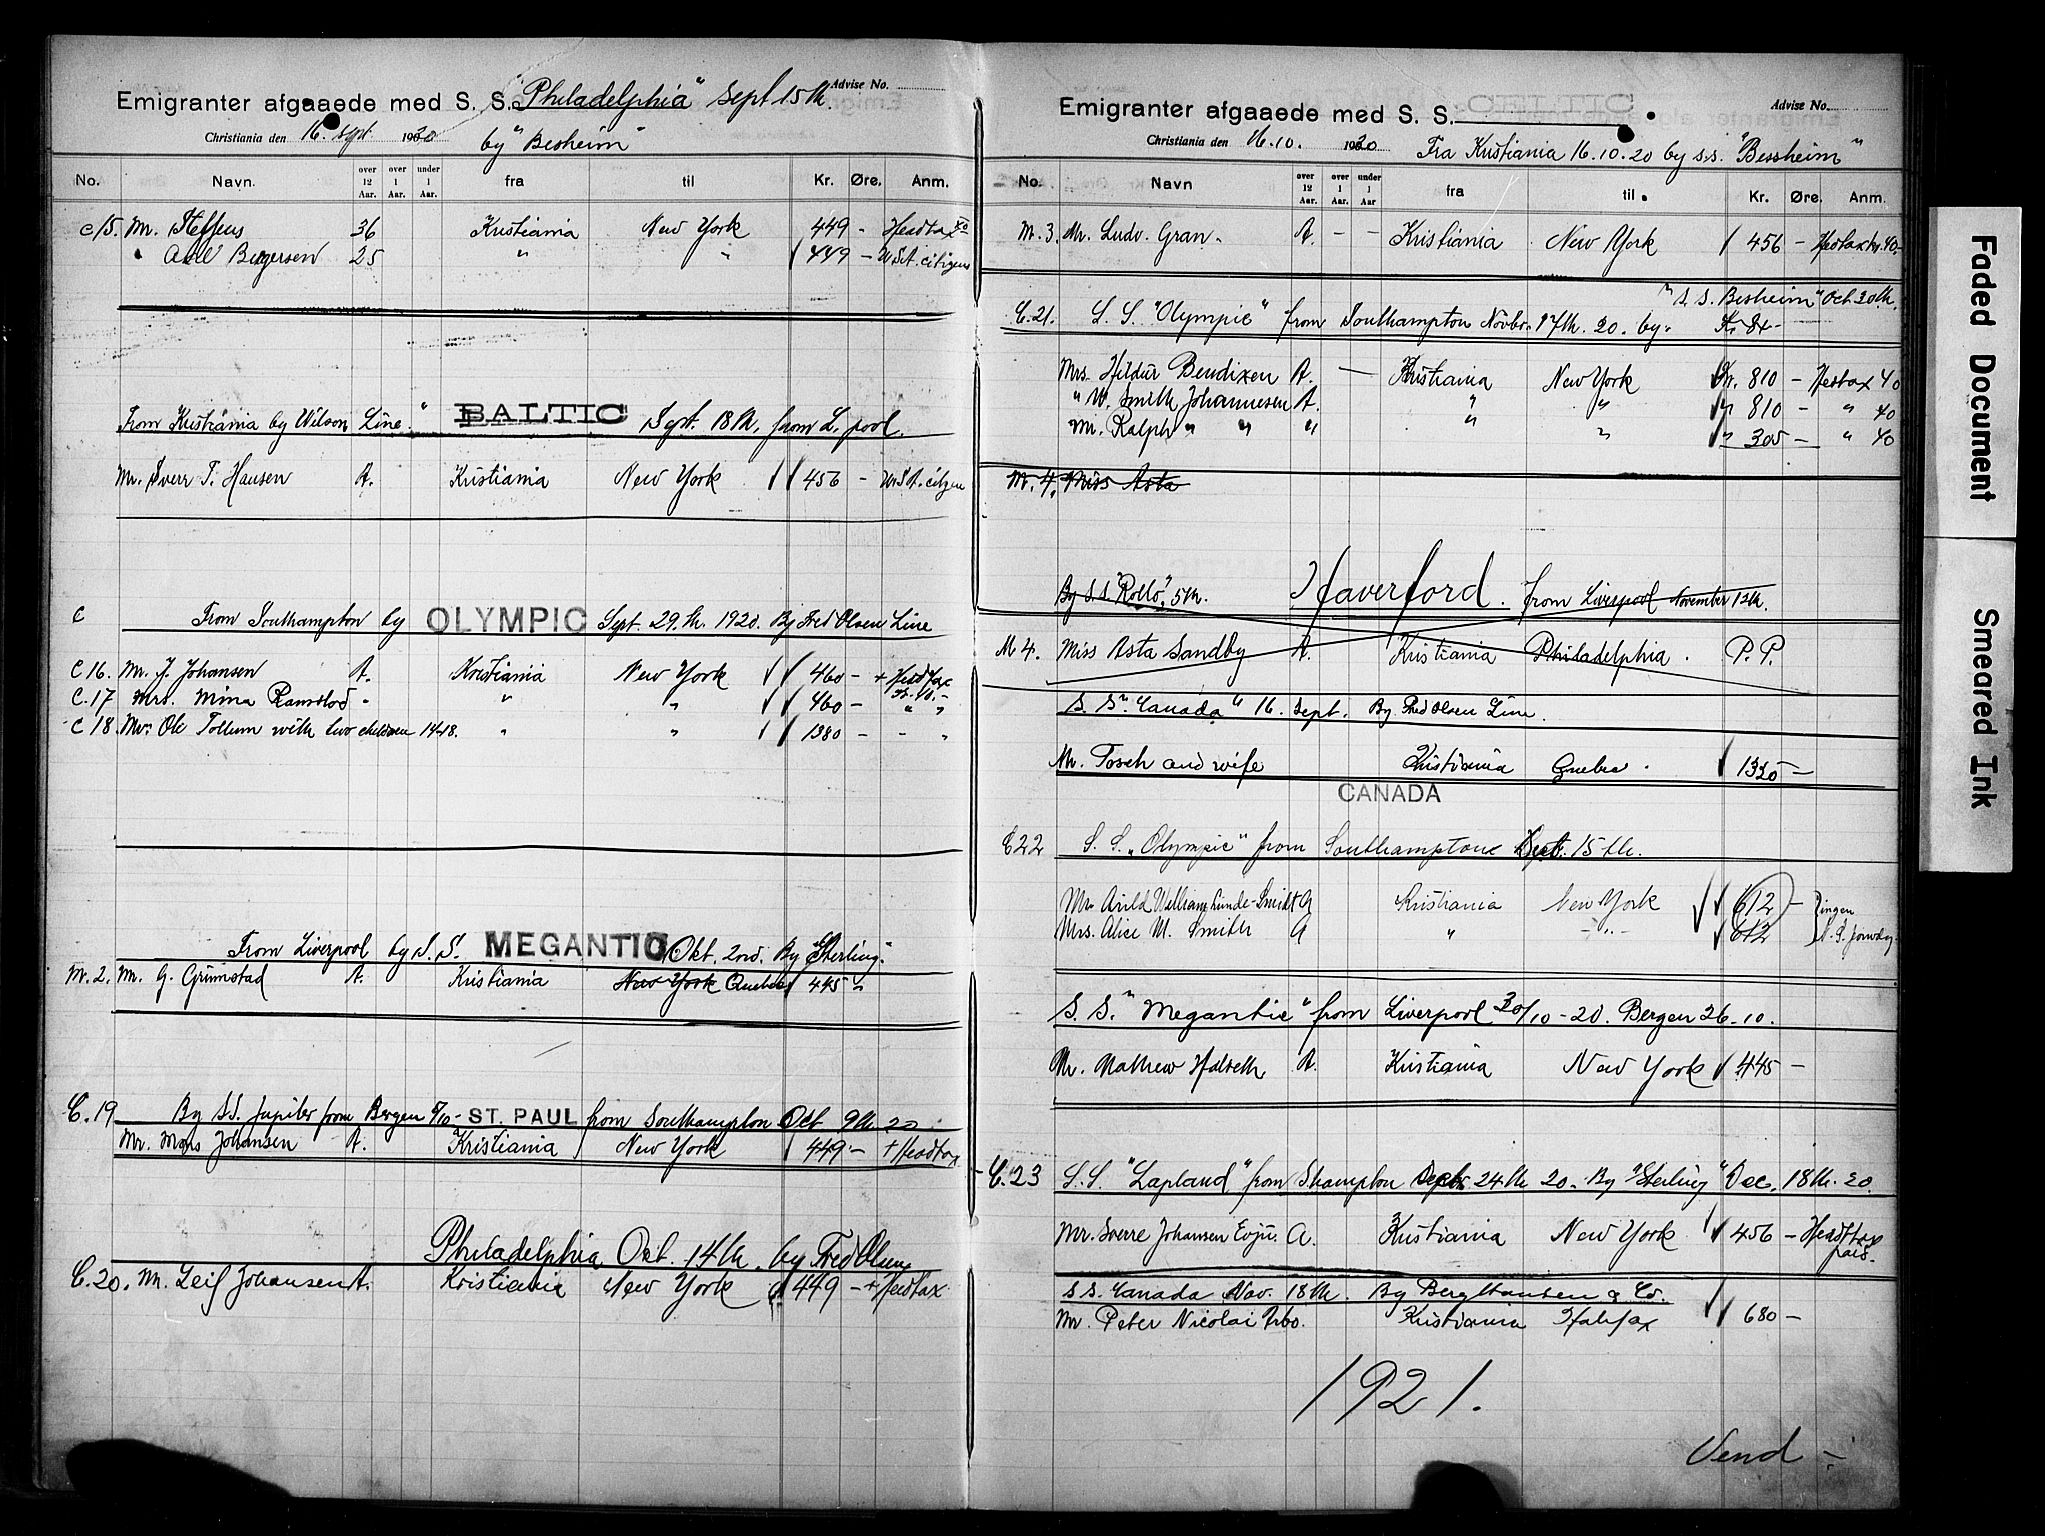 Advise No.
Emigranter afgaaede med S. S. "Philadelphia" Sept 15th
Christiania den 16. sept. 1920 by "Besheim"
No. Navn. over 12 Aar. over 1 Aar. under 1 Aar. fra til Kr. Øre. Anm.
C/5. Mr. Steffens 36 Kristiania New York 449 - Headtax
" Bergersen 25 " " 449 - U.S.A. citizens
From Kristiania by Wilson Line. " BALTIC Sept. 18th, from L.pool.
Mr. Sverr T. Hansen A. Kristiania New York 456 - U.S.A. citizen
C From Southampton by OLYMPIC Sept. 29.th. 1920. By Fred Olsen Line
C 16. Mr. J. Johansen A. Kristiania New York 460 - + Headtax
C. 17 Mrs. Mina Ramstod " " " 460 - " "
C 18. Mr. Ole Tollum with two children 14-18. " " 1380 - - "
From Liverpool by S.S. MEGANTIC Okt. 2nd. By "Sterling".
M. 2. Mr. G. Grimstad A. Kristiania New York Quebec 445 "
C. 19 By SS. Jupiter from Bergen 5/10 - ST. PAUL from Southampton Oct 9th 20
Mr. Mons Johansen A. Kristiania New York 449 - + Headtax
Philadelphia Oct. 14th. by Fred Olsen
C. 20. Mr. Leif Johansen A. Kristiania New York 449 - + Headtax
Emigranter afgaaede med S. S. Advise No.
Christiania den 16.10. 1920 Fra Kristiania 16.10.20 by s.s. "Bessheim"
No. Navn over 12 Aar. over 1 Aar. under 1 Aar fra til Kr. Øre. Anm.
M. 3. Mr. Ludv. Gran. A. - - Kristiania New York 456 - Headtax kr. 40-
" S. S. Besheim " Oct 30th.
C. 21. S. S. "Olympic" from Southampton Novbr. 17th. 20. by.
Mrs. Hildur Bendixen A. - Kristiania New York Kr. 810 - Hedtax 40
" W. Smith Johannesen A. " " " 810 - " 40
Mr. Ralph " " " " " " 305 - " 40
M. 4. Miss Asta
By S.S. "Rollo" 5th. Haverford. from Liverpool November 12th.
M 4. Miss Asta Sandby A. Kristiania Philadelphia. P. P.
S. S. "Canada" 16. Sept. By Fred Olsen Line.
Mr. Tosch and wife Kristiania Quebec. 1320 -
CANADA
C22 S. S. "Olympic" from Southampton 15th.
Mr. Arild William Lunde-Smidt A Kristiania New York 612 -
Mrs. Alice M. Smith A " - " - 612
S. S. "Megantic" from Liverpool 30/10-20. Bergen 26.10.
Mr. Mathew Halseth A. Kristiania New York 445 -
C. 23 S. S. "Lapland" from Shampton 24th 20. By "Sterling" Dec. 18th. 20.
Mr. Sverre Johansen Evju. A. Kristiania New York 456 - Headtax paid.
S S. Canada Nov. 18th. By Berg Hansen & Co.
Mr. Peter Nicolai Arbo. Kristiania Halifax 680 -
1921.
Vend -
Faded Document
Smeared Ink